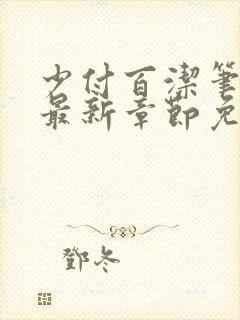 少付百潔筆
最新章節免
鄧冬